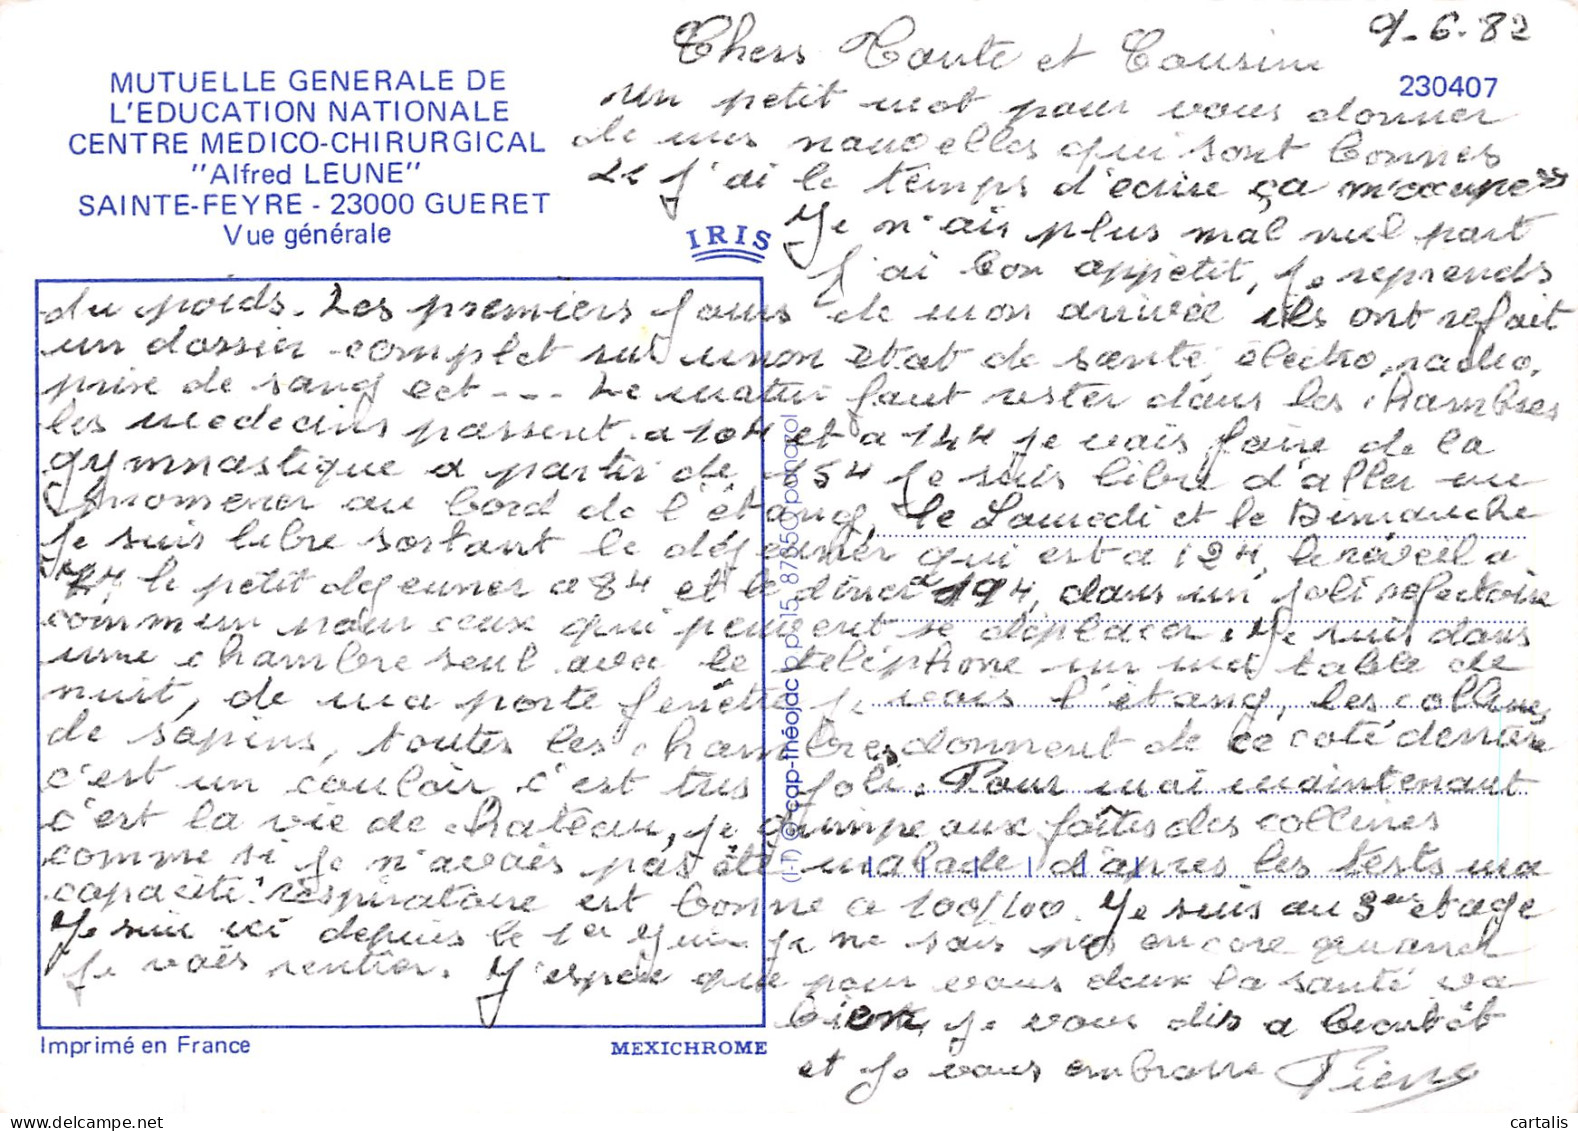 9-6-82
Chers Tante et Cousine
230407
MUTUELLE GENERALE DE
L'EDUCATION NATIONALE
CENTRE MEDICO-CHIRURGICAL
"Alfred LEUNE"
SAINTE-FEYRE - 23000 GUERET
Vue générale
IRIS
un petit mot pour vous donner
de mes nouvelles qui sont bonnes
et j'ai le temps d'écrire ça m'occupe
Je n'ais plus mal nul part
j'ai bon appétit, je reprends
du poids. Les premiers jours de mon arrivée ils ont refait
un dossier complet sur mon état de santé, électro, radio,
prise de sang ect--- Le matin faut rester dans les chambres
les medecins passent. a 10H et a 14H je vais faire de la
gymnastique a partir de 15H je suis libre d'aller me
promener au bord de l'étang, le Samedi et le Dimanche
je suis libre sortant le déjeuner qui est a 12H, le réveil a
7H le petit déjeuner a 8H et le diner a 19H, dans un joli refectoire
commun pour ceux qui peuvent se déplacer. Je suis dans
une chambre seul avec le téléphone sur ma table de
nuit, de ma porte fenêtre je vois l'étang, les collines
de sapins, toutes les chambres donnent de ce coté derrière
c'est un couloir c'est tres joli. Pour moi maintenant
c'est la vie de chateau, je grimpe aux faîtes des collines
comme si je n'avais pas été malade d'apres les tests ma
capacité respiratoire est bonne a 100/100. Je suis au 3eme etage
Je suis ici depuis le 1er Juin je ne sais pas encore quand
je vais rentrer. J'espère que pour vous deux la santé va
bien, je vous dis a bientôt
et je vous embrasse Pierre
Imprimé en France
MEXICHROME
(I-T) © cap-théojac b.p. 15, 87350 panazol
cartalis